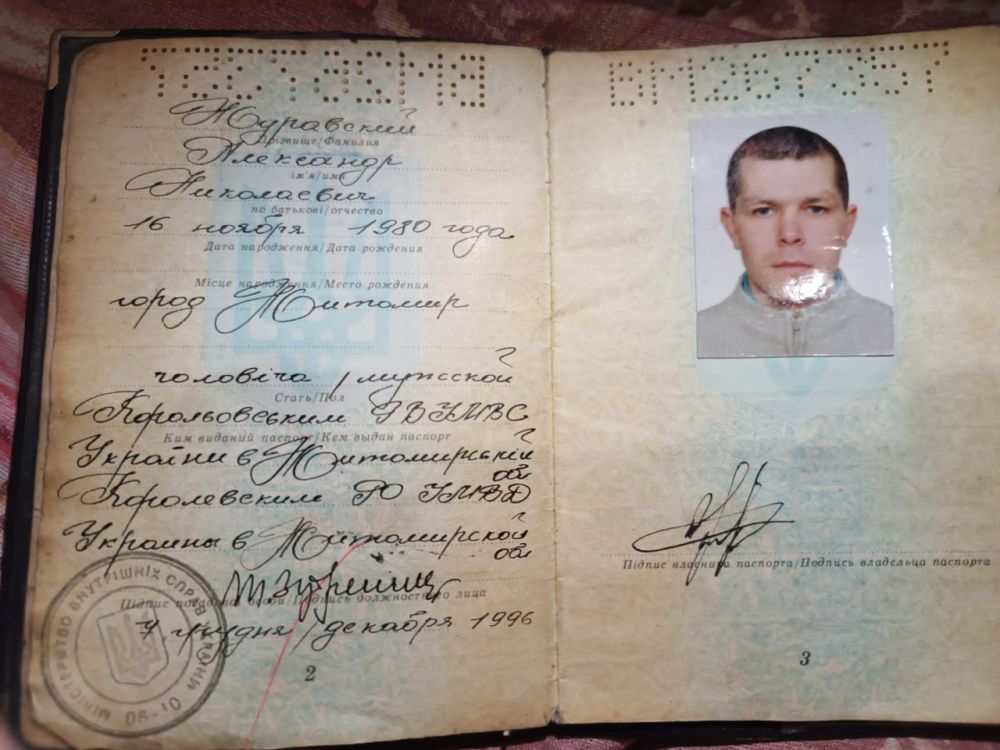 Журавский
Прізвище/Фамилия
Александр
ім'я/имя
Николаевич
по батькові/отчество
16 ноября 1980 года
Дата народження/Дата рождения
Місце народження/Место рождения
город Житомир
чоловіча / мужской
Стать/Пол
Корольовським РВ УМВС
Ким виданий паспорт/Кем выдан паспорт
України в Житомирській
обл
Королевским РО УМВД
Украины в Житомирской
обл
Підпис посадової особи/Подпись должностного лица
7 грудня / декабря 1996
МІНІСТЕРСТВО ВНУТРІШНІХ СПРАВ УКРАЇНИ
2
ВМ267357
Підпис власника паспорта/Подпись владельца паспорта
3